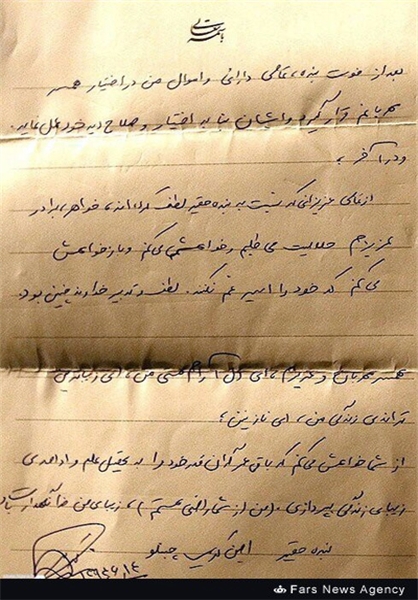 باسمه تعالی
بعد از فوت بنده، تمامی دارائی و اموال من در اختیار همسر
مهربانم قرار گیرد و ایشان بنا به اختیار و صلاح دید خود عمل نماید.
و در آخر،
از تمامی عزیزانی که نسبت به بنده حقیر لطف کرده‌اند، خواهر، برادر
عزیزم حلالیت می طلبم و خواهش می کنم و باز خواهش
می کنم که خود را اسیر غم نکنند. لطف و تدبیر خداوند چنین بود.
همسر مهربان و عزیزم، ای دل آرام هستی من، ای زیباترین
ترانه‌ی زندگی من، ای نازنین؛
از شما خواهش می کنم که باقی عمر گران قدر خود را به تحصیل علم و ادامه‌ی
زیبای زندگی بپردازی. (من از شما راضی هستم)، زیبای من خدا نگهدارت باد
بنده حقیر امین کریمی چنبلو
Fars News Agency